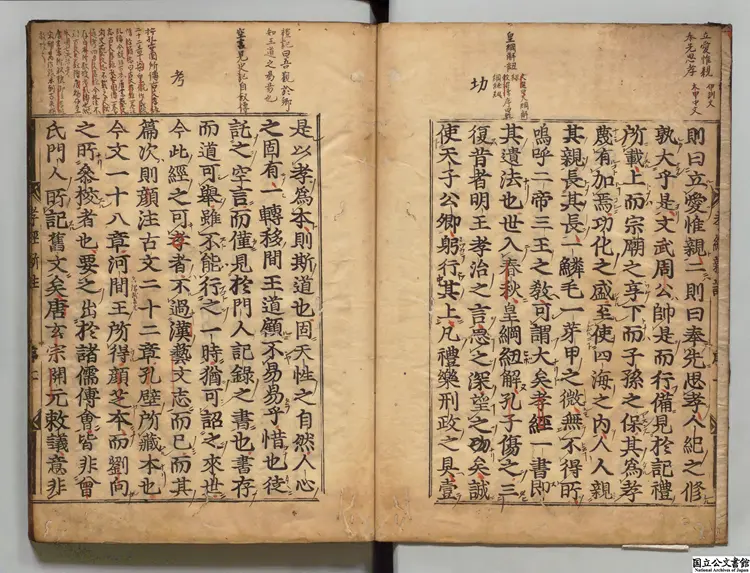 立愛惟親
奉先思孝
伊訓文
太甲中文
皇綱解紐
功
則曰立愛惟親二則曰奉先思孝人紀之修
孰大乎是文武周公帥是而行備見於記禮
所載上而宗廟之享下而子孫之保其爲孝
蔑有加焉功化之盛至使四海之内人人親
其親長其長一鱗毛一芽甲之微無不得所
嗚呼二帝三王之敎可謂大矣孝經一書即
其遺法也世入春秋皇綱紐解孔子傷之三
復昔者明王孝治之言思之深望之功矣誠
使天子公卿躬行其上凡禮樂刑政之具壹
禮記曰吾觀於鄉
知王道之易易也
空言見史記自敘傳
考
是以孝爲本則斯道也固天性之自然人心
之固有一轉移間王道顧不易易乎惜也徒
託之空言而僅見於門人記錄之書也書存
而道可舉雖不能行之一時猶可詔之來世
今此經之可考者不過漢藝文志而已而其
篇次則顏注古文二十二章孔壁所藏本也
今文一十八章河間王所得顏芝本而劉向
之所叅校者也要之出於諸儒傅會皆非曾
氏門人所記舊文矣唐玄宗開元敕議意非
国立公文書館
National Archives of Japan